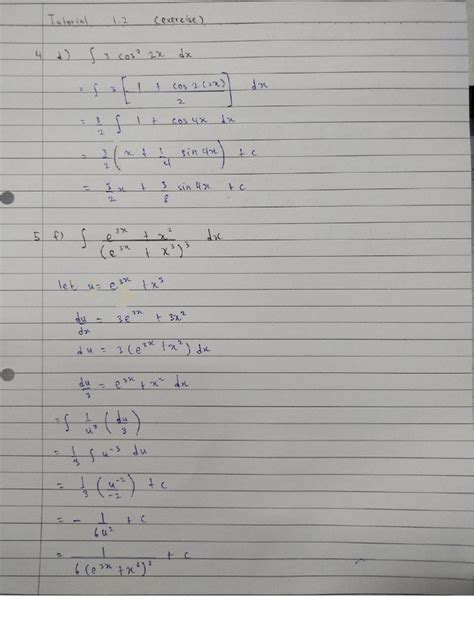 Tutorial 1.2 (exercise)
4 d) ∫ 3 cos² 2x dx
= ∫ 3 [ (1 + cos 2(2x)) / 2 ] dx
= 3/2 ∫ 1 + cos 4x dx
= 3/2 ( x + 1/4 sin 4x ) + c
= 3/2 x + 3/8 sin 4x + c
5 f) ∫ (e^(3x) + x²) / (e^(3x) + x³)³ dx
let u = e^(3x) + x³
du/dx = 3e^(3x) + 3x²
du = 3 (e^(3x) + x²) dx
du/3 = e^(3x) + x² dx
= ∫ 1/u³ (du/3)
= 1/3 ∫ u^(-3) du
= 1/3 ( u^(-2) / -2 ) + c
= - 1/(6u²) + c